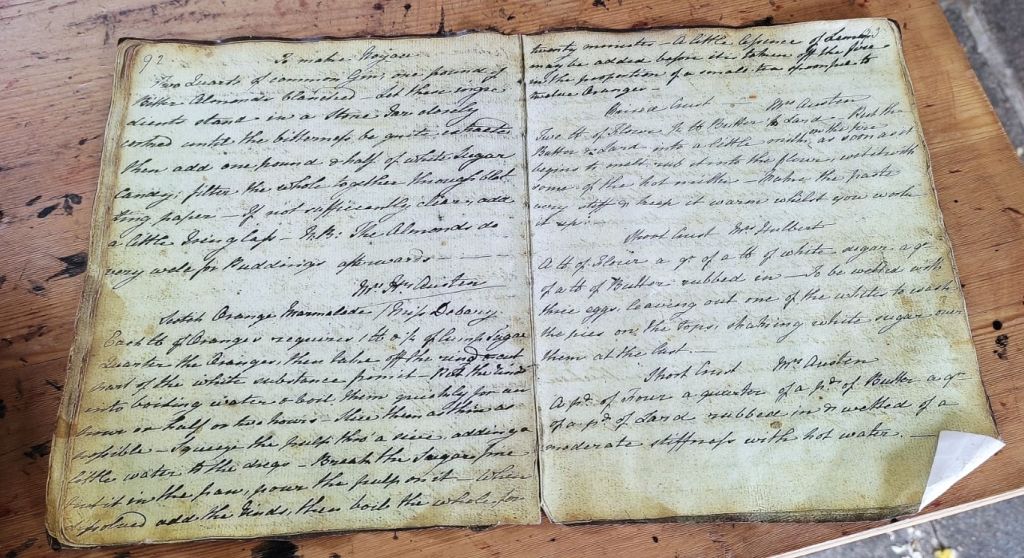 92
To make Noyau
Two Quarts of common Gin, one pound of
Bitter Almonds blanched let these ingre
dients stand in a Stone Jar closely
corked until the bitterness be quite extracted
then add one pound & half of white Sugar
Candy; filter the whole together through blot
ting paper — If not sufficiently clear, add
a little Isinglass — NB: The Almonds do
very well for Puddings afterwards —
Mrs Hy Austen
Scotch Orange Marmalade Miss Debary
Each lb of Oranges requires 1 lb of Lump Sugar
Quarter the Oranges, then take off the rind & cut
part of the white substance from it — Put the rinds
into boiling water & boil them quickly for an
hour or half or two hours — slice them as thin as
possible — Squeeze the pulp thro' a sieve, adding a
little water to the dregs — Break the Sugar fine
put it in the pan, pour the pulp on it — When
dissolved add the rinds, then boil the whole for
twenty minutes A little Essence of Lemon
may be added before it is taken off the fire
in the proportion of a small tea spoonful to
twelve Oranges —
Raised Crust — Mrs Austen
Two lb of Flour ½ lb Butter Lard — Put the
Butter & Lard into a little milk on the fire, as soon as it
begins to melt, rub it into the flour, wet it with
some of the hot milk — Make the paste
very stiff & keep it warm whilst you work
it up. —
Short Crust Mrs Hulbert
A lb of Flour a qr of a lb of white sugar a qr
of a lb of Butter rubbed in — To be wetted with
three eggs, leaving out one of the whites to wash
the pies on the tops; shaking white sugar over
them at the last. —
Short Crust Mrs Austen
A pd of Flour a quarter of a pd of Butter a qr
of a pd of Lard rubbed in & wetted of a
moderate stiffness with hot water. —